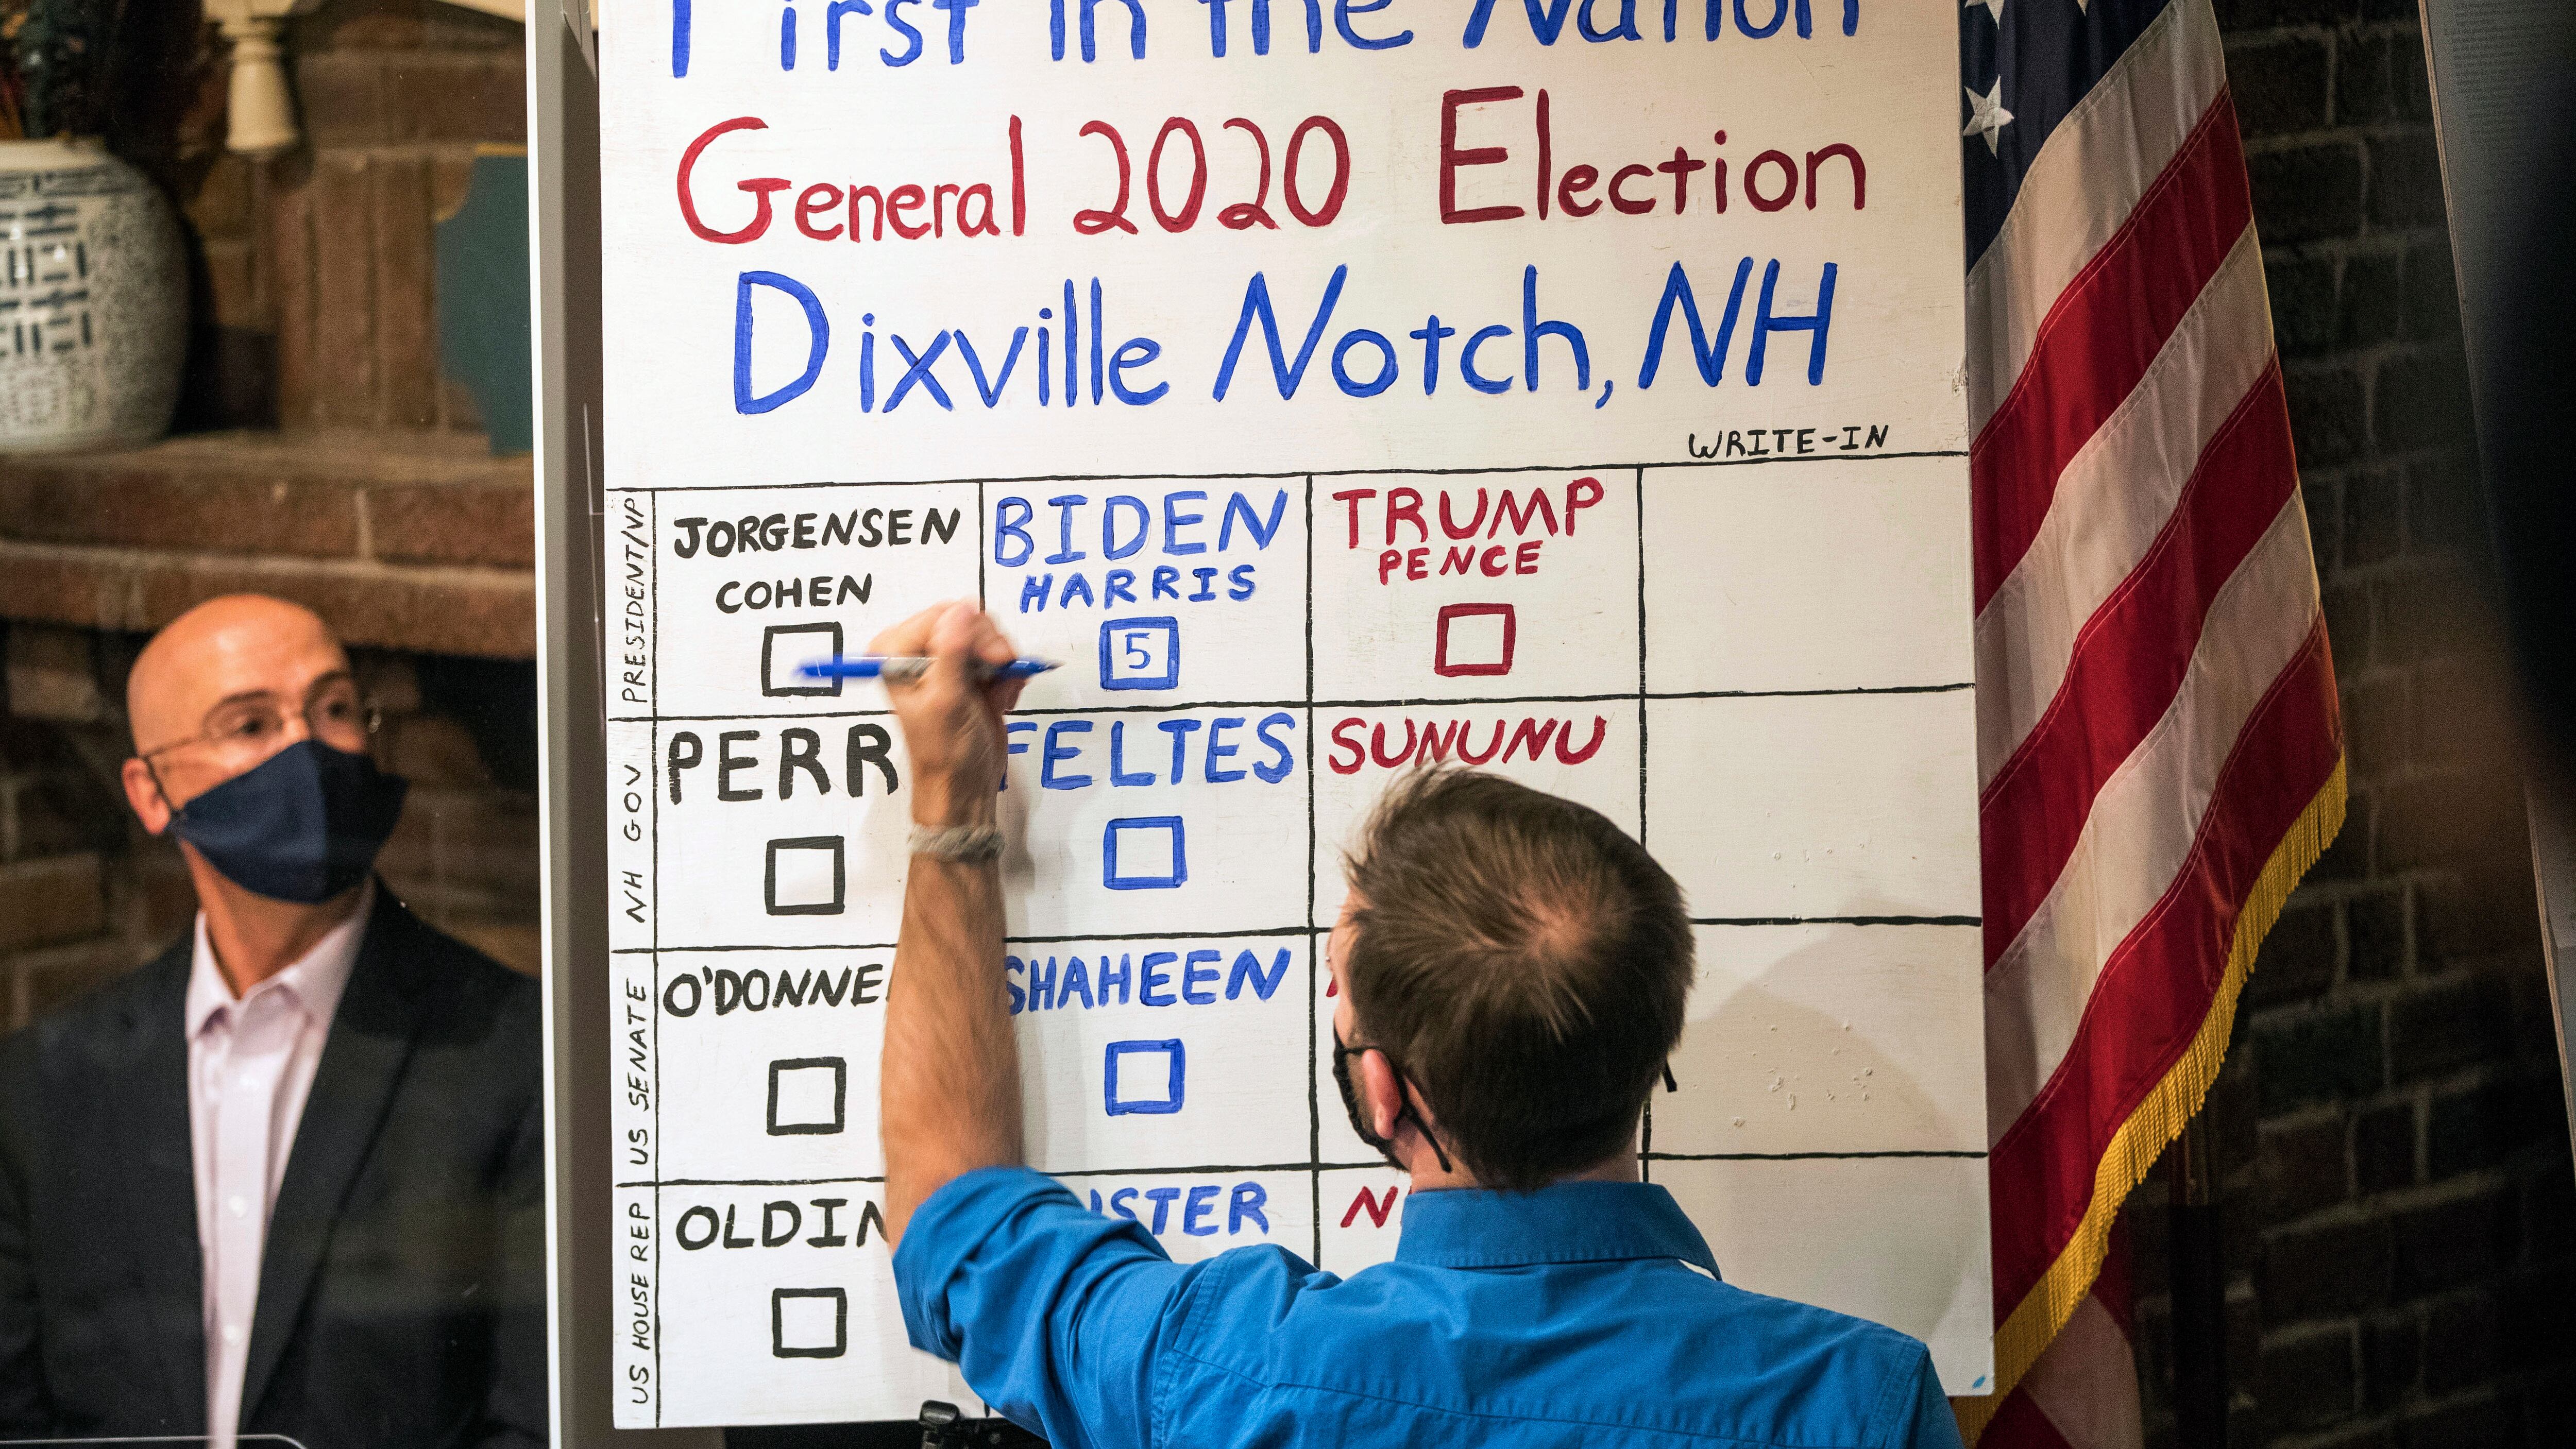 First in the Nation
General 2020 Election
Dixville Notch, NH
WRITE-IN
PRESIDENT/VP
JORGENSEN
COHEN
BIDEN
HARRIS
5
TRUMP
PENCE
NH GOV
PERR
FELTES
SUNUNU
US SENATE
O'DONNE
SHAHEEN
US HOUSE REP
OLDIN
STER
N